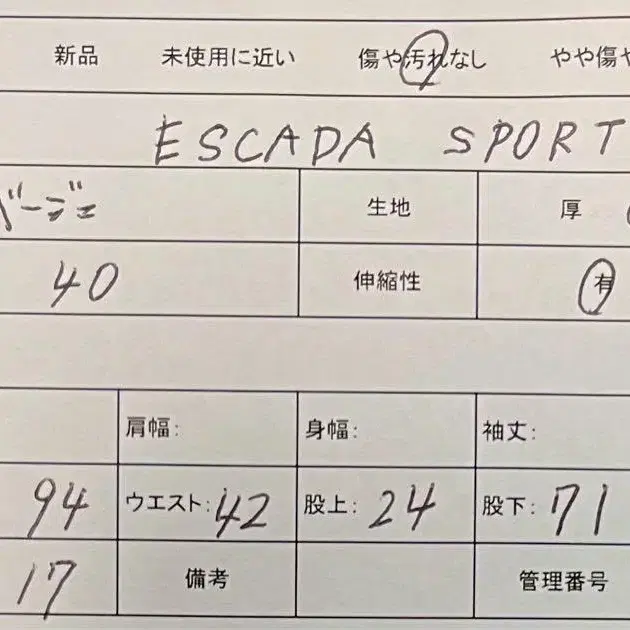 新品 未使用に近い 傷や汚れなし やや傷や
ESCADA SPORT
ベージュ 生地 厚
40 伸縮性 有
肩幅: 身幅: 袖丈:
94 ウエスト: 42 股上: 24 股下: 71
17 備考 管理番号